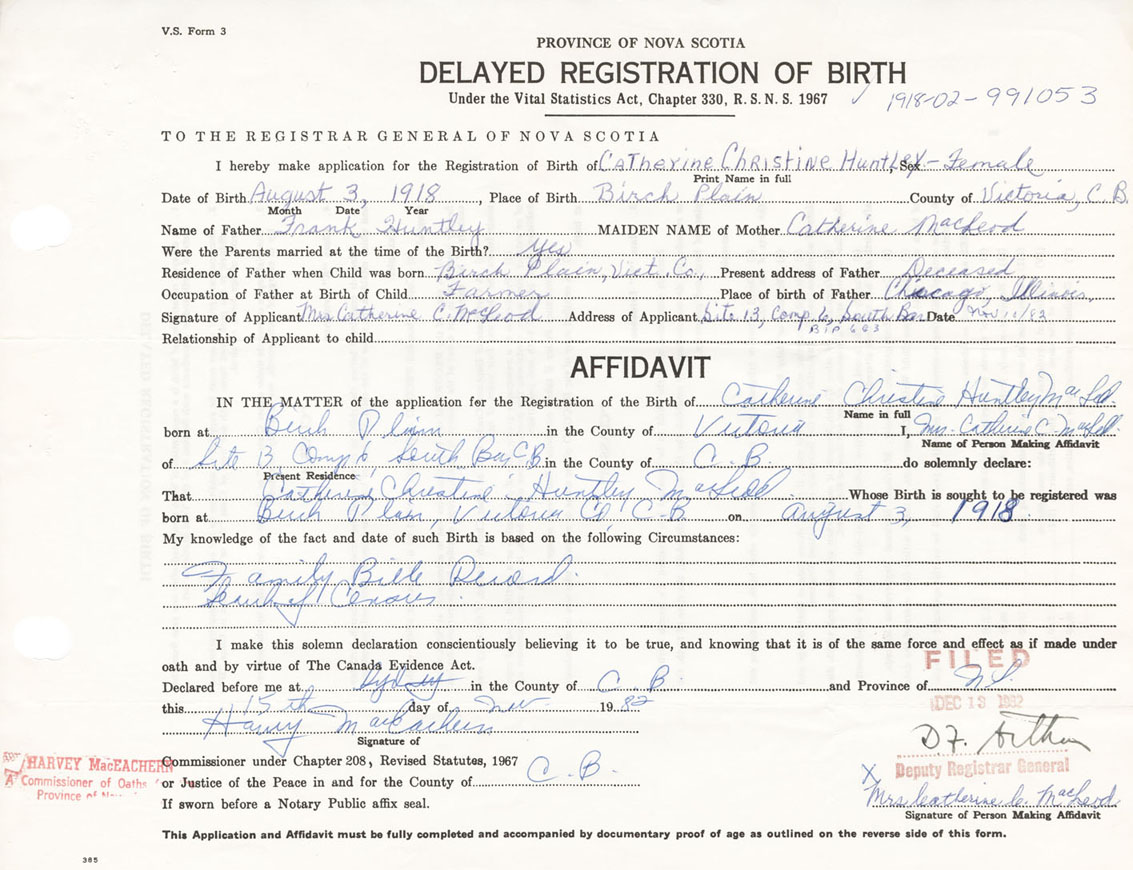 V.S. Form 3
PROVINCE OF NOVA SCOTIA
DELAYED REGISTRATION OF BIRTH
Under the Vital Statistics Act, Chapter 330, R.S.N.S. 1967 1918-02-991053
TO THE REGISTRAR GENERAL OF NOVA SCOTIA
I hereby make application for the Registration of Birth of Catherine Christine Huntley, Sex - Female
Print Name in full
Date of Birth August 3, 1918, Place of Birth Birch Plain County of Victoria, C.B.
Month Date Year
Name of Father Frank Huntley MAIDEN NAME of Mother Catherine MacLeod
Were the Parents married at the time of the Birth? Yes
Residence of Father when Child was born Birch Plain, Vict. Co., Present address of Father Deceased
Occupation of Father at Birth of Child Farmer Place of birth of Father Chicago, Illinois
Signature of Applicant Mrs Catherine C. McLeod Address of Applicant Site 13, Comp 6, South Bar Date Nov
Relationship of Applicant to child
AFFIDAVIT
IN THE MATTER of the application for the Registration of the Birth of Catherine Christine Huntley
Name in full
born at Birch Plain in the County of Victoria I, Mrs. Catherine C.
Name of Person Making Affidavit
of Site 13, Comp 6, South Bar C.B. in the County of C.B. do solemnly declare:
Present Residence
That Catherine Christine Huntley MacLeod Whose Birth is sought to be registered was
born at Birch Plain, Victoria Co, C.B. on August 3, 1918
My knowledge of the fact and date of such Birth is based on the following Circumstances:
Family Bible Record.
Search of Census
I make this solemn declaration conscientiously believing it to be true, and knowing that it is of the same force and effect as if made under
oath and by virtue of The Canada Evidence Act.
FILED
Declared before me at Sydney in the County of C.B. and Province of N.S.
this 15th day of Nov 1982
DEC 13 1982
Harvey MacEachern
Signature of
Commissioner under Chapter 208, Revised Statutes, 1967
HARVEY MacEACHERN
A Commissioner of Oaths
Province of
or Justice of the Peace in and for the County of C.B.
Deputy Registrar General
X Mrs Catherine C. MacLeod
Signature of Person Making Affidavit
If sworn before a Notary Public affix seal.
This Application and Affidavit must be fully completed and accompanied by documentary proof of age as outlined on the reverse side of this form.
385